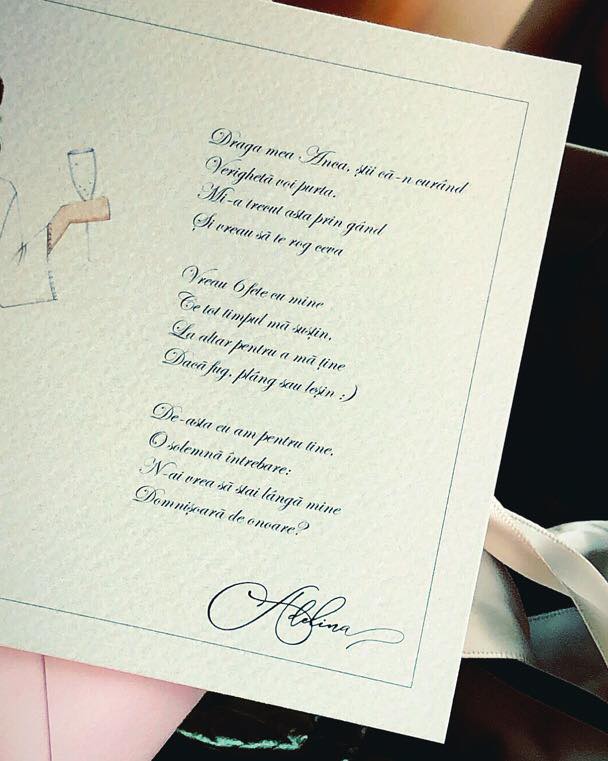 Draga mea Anca, știi că-n curând
Verighetă voi purta.
Mi-a trecut asta prin gând
Și vreau să te rog ceva
Vreau 6 fete cu mine
Ce tot timpul mă susțin,
La altar pentru a mă ține
Dacă fug, plâng sau leșin :)
De-asta eu am pentru tine,
O solemnă întrebare:
N-ai vrea să stai lângă mine
Domnișoară de onoare?
Adelina